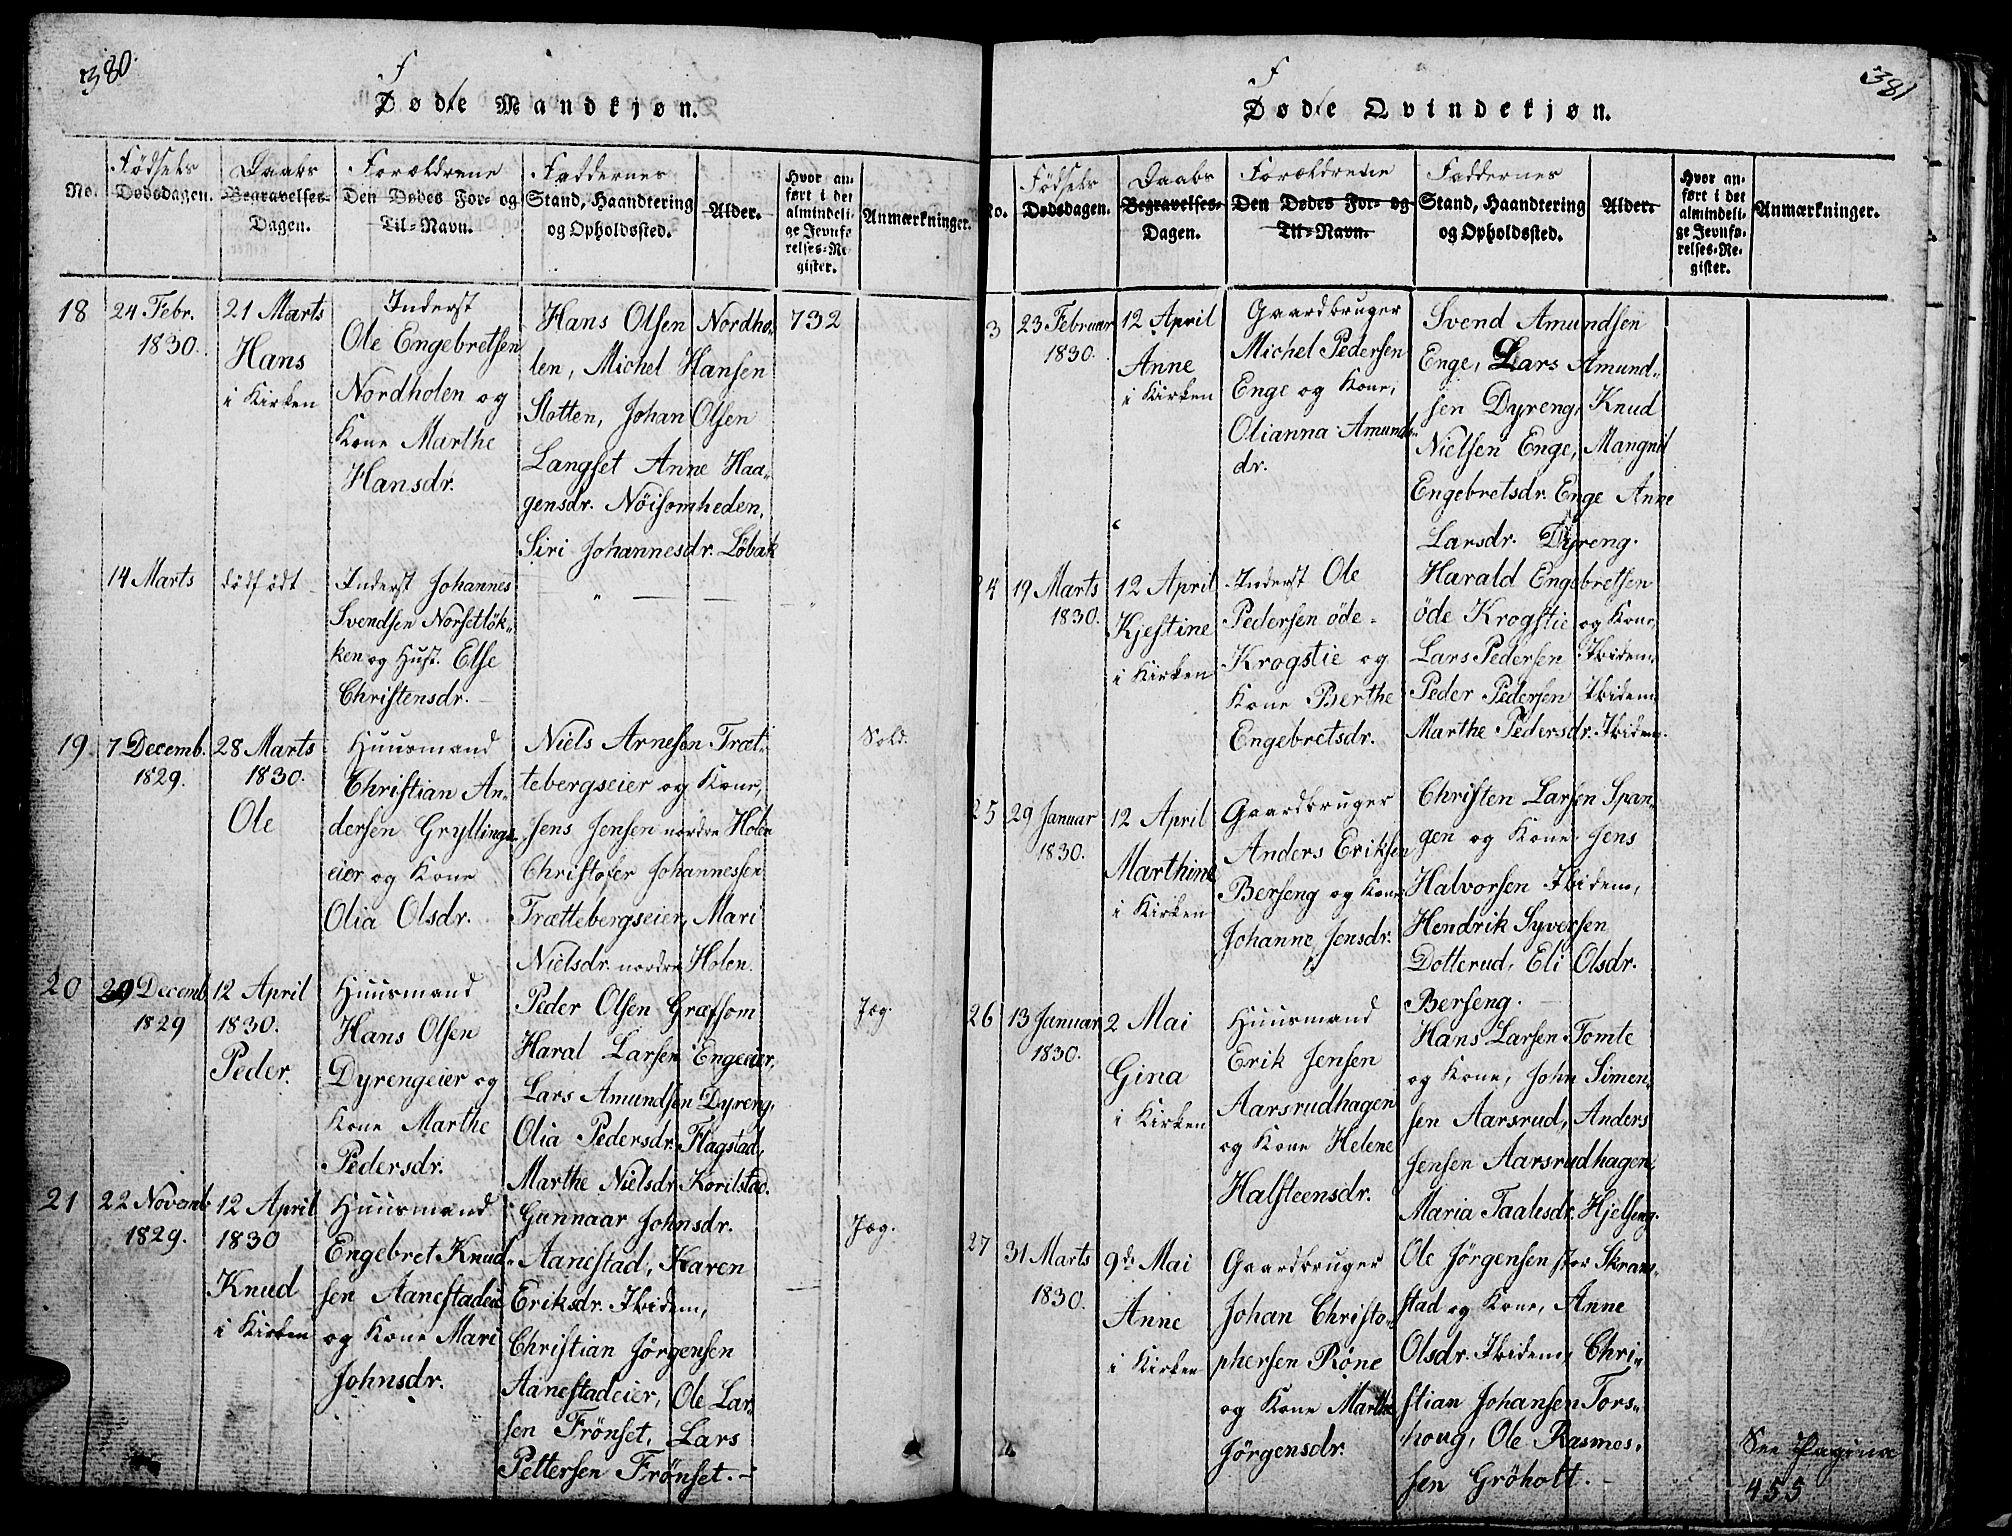 380.
Fødte Mandkjøn.
No.
Fødsels
Dødsdagen.
Daabs
Begravelses-
Dagen.
Forældrene
Den Dødes For- og
Til-Navn.
Faddernes
Stand, Haandtering
og Opholdssted.
Alder.
Hvor an-
ført i det
almindeli-
ge Jevnfø-
relses-Re-
gister.
Anmærkninger.
18
24 Febr.
1830.
21 Marts
Hans
i Kirken
Inderst
Ole Engebretsen
Nordholen og
Kone Marthe
Hansdr.
Hans Olsen Nordho-
len, Michel Hansen
Slotten, Johan Olsen
Langset Anne Haa-
gensdr. Nöisomheden,
Siri Johannesdr. Löbak
732
14 Marts
dödfödt
Inderst Johannes
Svendsen Norsetlök-
ken og Hust. Else
Christensdr.
19.
7 Decemb.
1829.
28 Marts
1830.
Ole
Huusmand
Christian An-
dersen Gryllings-
eier og Kone
Olia Olsdr.
Niels Arnesen Træt-
tebergseier og Kone,
Jens Jensen nordre Holen
Christofer Johannessen
Trættebergseier, Mari
Nielsdr. nordre Holen.
Sold.
20
29 Decemb.
1829
12 April
1830.
Peder.
Huusmand
Hans Olsen
Dyrengeier og
Kone Marthe
Pedersdr.
Peder Olsen Græsom
Haral Larsen Engeeier,
Lars Amundsen Dyreng,
Olia Pedersdr. Flagstad,
Marthe Nielsdr. Korilstad.
Jæg.
21
22 Novemb.
1829.
12 April
1830
Knud
i Kirken
Huusmand
Engebret Knud-
sen Aanestadeie
og Kone Mari
Johnsdr.
Gunnaar Johnsdr.
Aanestad, Karen
Eriksdr. Ibidem,
Christian Jörgensen
Aanestadeier, Ole Lar-
sen Frönset, Lars
Pettersen Frönset.
Jæg.
381
Fødte Qvindekjøn.
No.
Fødsels
Dødsdagen.
Daabs
Begravelses-
Dagen.
Forældrene
Den Dødes For- og
Til-Navn.
Faddernes
Stand, Haandtering
og Opholdssted.
Alder.
Hvor an-
ført i det
almindeli-
ge Jevnfø-
relses-Re-
gister.
Anmærkninger.
3
23 Februar
1830.
12 April
Anne
i Kirken
Gaardbruger
Michel Pedersen
Enge og Kone,
Olianna Amunds-
dr.
Svend Amundsen
Enge, Lars Amund-
sen Dyreng, Knud
Nielsen Enge, Mangnil
Engebretsdr. Enge Anne
Larsdr. Dyreng.
24
19 Marts
1830.
12 April
Kjestine
i Kirken
Inderst Ole
Pedersen öde-
Krogstie og
Kone Berthe
Engebretsdr.
Harald Engebretsen
öde Krogstie og Kone,
Lars Pedersen Ibidem,
Peder Pedersen Ibidem
Marthe Pedersdr. Ibidem.
25
29 Januar
1830.
12 April
Marthine
i Kirken
Gaardbruger
Anders Eriksen
Berseng og Kone
Johanne Jensdr.
Christen Larsen Span-
gen og Kone, Jens
Halvorsen Ibidem,
Hendrik Syversen
Dotterud, Eli Olsdr.
Berseng.
26
13 Januar
1830.
2 Mai
Gina
i Kirken
Huusmand
Erik Jensen
Aarsrudhagen
og Kone Helene
Halsteensdr.
Hans Larsen Tomte
og Kone, John Simen-
sen Aarsrud, Anders
Jensen Aarsrudhagen,
Maria Taalesdr. Hjelseng.
27
31 Marts
1830.
9de Mai
Anne
i Kirken
Gaardbruger
Johan Christo-
phersen Röne
og Kone Marthe
Jörgensdr.
Ole Jörgensen stor Skram-
stad og Kone, Anne
Olsdr. Ibidem, Chri-
stian Johansen Tors-
houg, Ole Rasmes-
sen Gröholt.
See Pagina
455